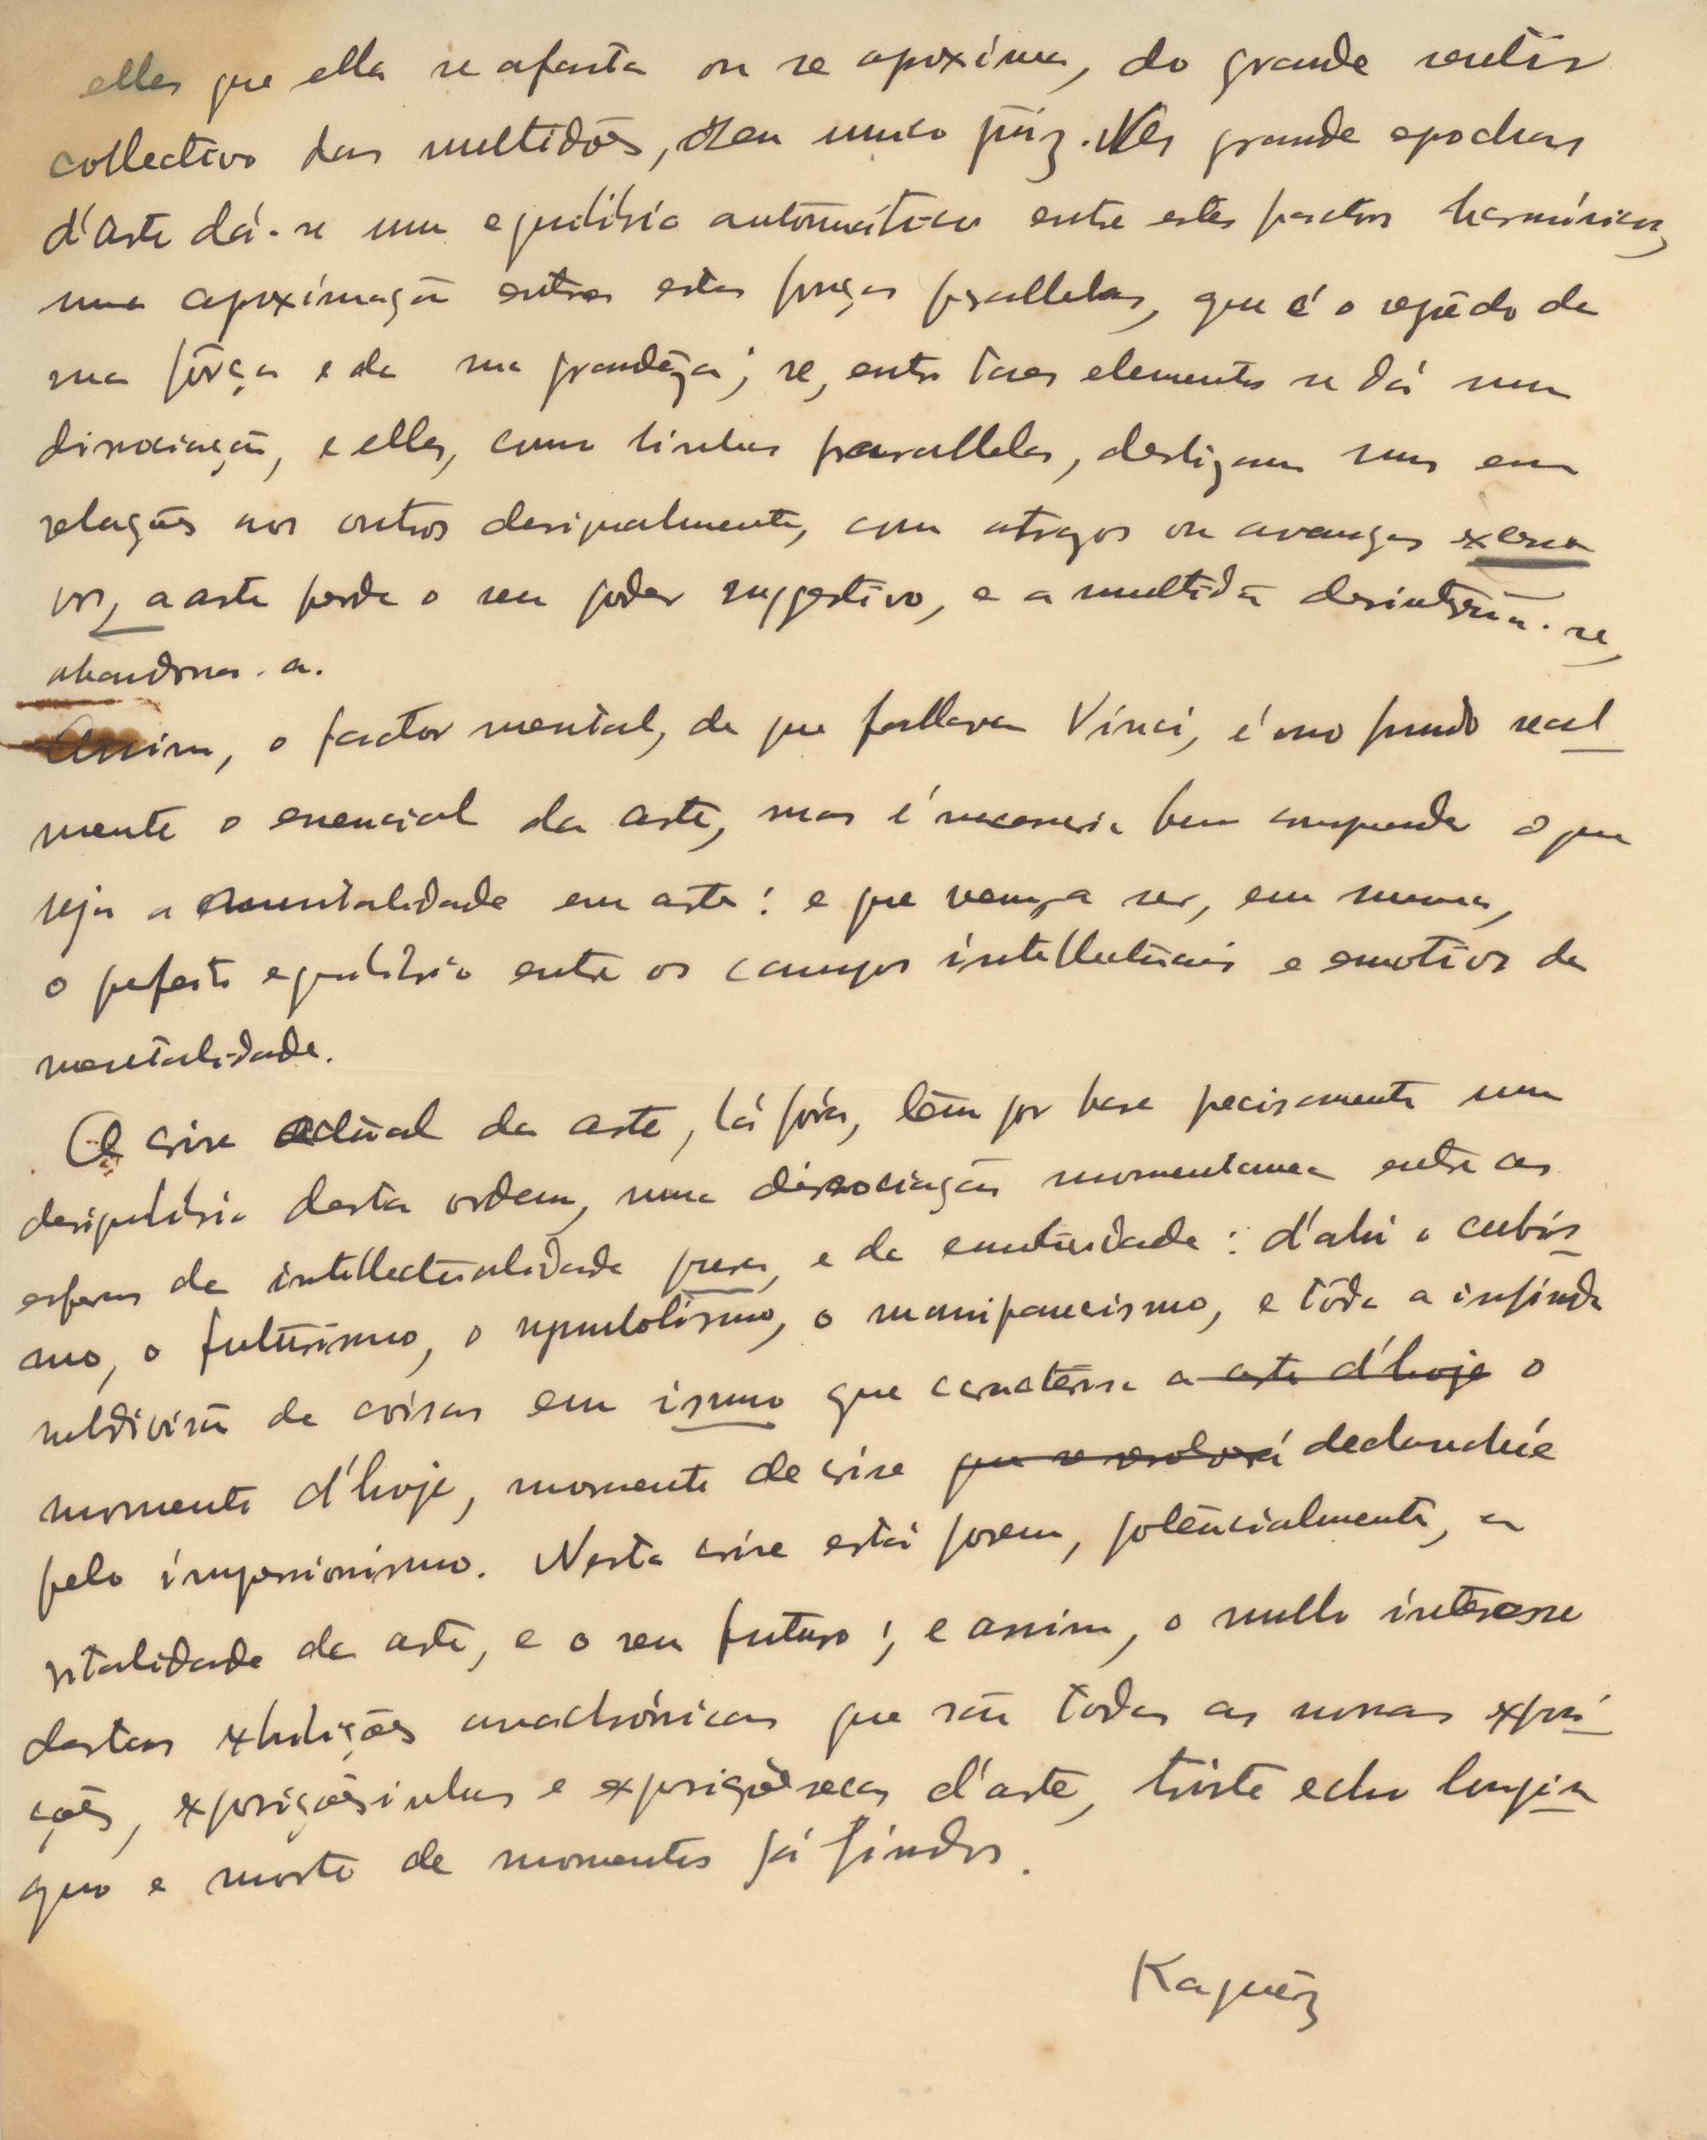 elles que ella se afasta ou se aproxima, do grande sentir
collectivo das multidões, seu unico juiz. Nas grande epochas
d'arte dá-se um equilibrio automático entre estes factos harmónicos,
uma aproximação entre estas forças parallelas, que é o segrêdo da
sua fôrça e da sua grandêza; se, entre taes elementos se dá uma
dissociação, e elles, como linhas parallelas, deslizam uns em
relações aos outros desigualmente, com atrazos ou avanços
a arte perde o seu poder suggestivo, e a multidão desinteréssa-se,
abandona-a.
Assim, o factor mental, de que fallava Vinci, é no fundo real
mente o essencial da arte, mas é necessario bem comprender o que
seja a mentalidade em arte: e que vem a ser, em summa,
o perfeito equilibrio entre os campos intellectuais e emotivos da
mentalidade.
A crise actual da arte, lá fóra, têm por base precisamente um
desiquilibrio desta ordem, uma dissociação momentanea entre as
esferas da intellectualidade pura, e da emotividade: d'ahi o cubis
mo, o futurismo, o o manipansismo, e tôda a infinda
subdivisão de coisas em ismo que caracterisa a arte d'hoje o
momento d'hoje, momento de crise que se resolverá declanchée
pelo impressionismo. Nesta crise está porem, potencialmente, a
vitalidade da arte, e o seu futuro; e assim, o nullo interesse
destas exhibições anachrónicas que são todas as nossas exposi
ções, exposiçõesinhas e exposiçõesecas d'arte, triste echo longin
quo e morto de momentos já findos.